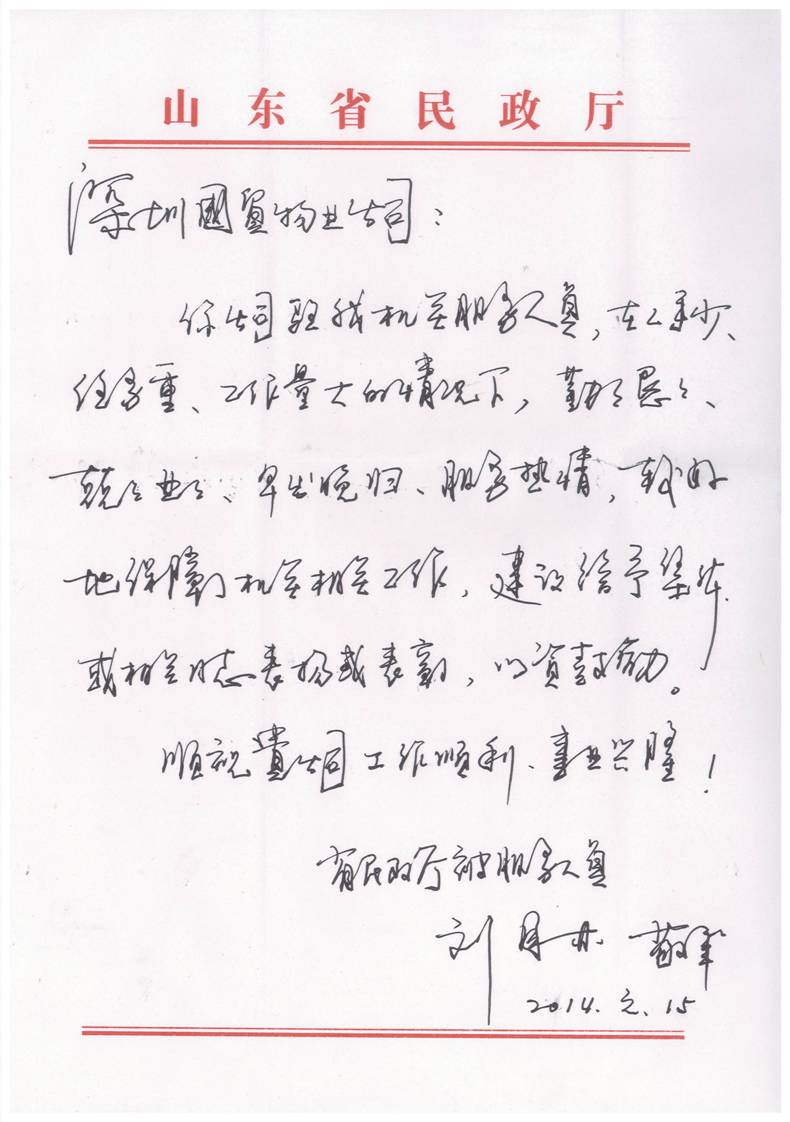 山东省民政厅
深圳國貿物业公司：
你公司驻我机关服务人員，在人手少、
任务重、工作量大的情况下，勤勤恳恳、
兢兢业业、早出晚归、服务热情，较好
地保障了机关相关工作，建议给予集体
或相关同志表扬或表彰，以资鼓励。
顺祝貴公司工作顺利、事业兴隆！
省民政厅被服务人員
刘 敬笔
2014.元.15